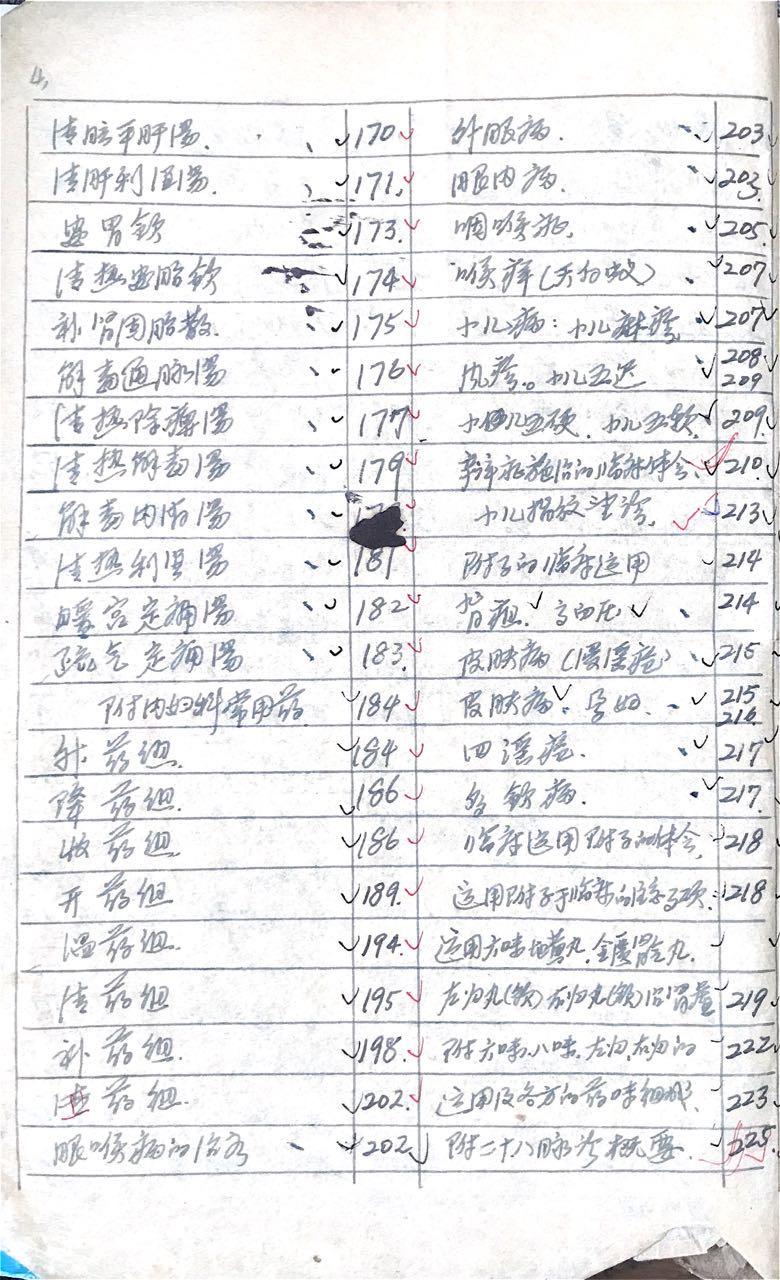 4,
清脑平肝汤 170
清肝利湿汤 171
安胃饮 173
清热安胎饮 174
补肾固胎散 175
解毒通脉汤 176
清热除痹汤 177
清热解毒汤 179
解毒内消汤
清热利湿汤 181
暖宫定痛汤 182
疏气定痛汤 183
附内妇科常用药 184
升药组 184
降药组 186
收药组 186
开药组 189
温药组 194
清药组 195
补药组 198
药组 202
眼喉病的治疗 202
外眼病 203
眼内病 203
咽喉症 205
喉痹(天白蚁) 207
小儿病:小儿麻疹 207
风疹。小儿五迟 208 209
小儿五硬、小儿五软 209
辩症施治的临床体会 210
小儿指纹望诊 213
附子的临床运用 214
背疽 高血压 214
皮肤病(浸淫疮) 215
皮肤病、孕妇 215 216
四淫疮 217
饮病 217
临床运用附子的体会 218
运用附子于临床的注意事项 218
运用六味地黄丸、金匮肾气丸
左归丸(饮)右归丸(饮)治胃 219
附六味、八味、左归、右归的 222
运用及各方的药味组成 223
附二十八脉诊概要 225